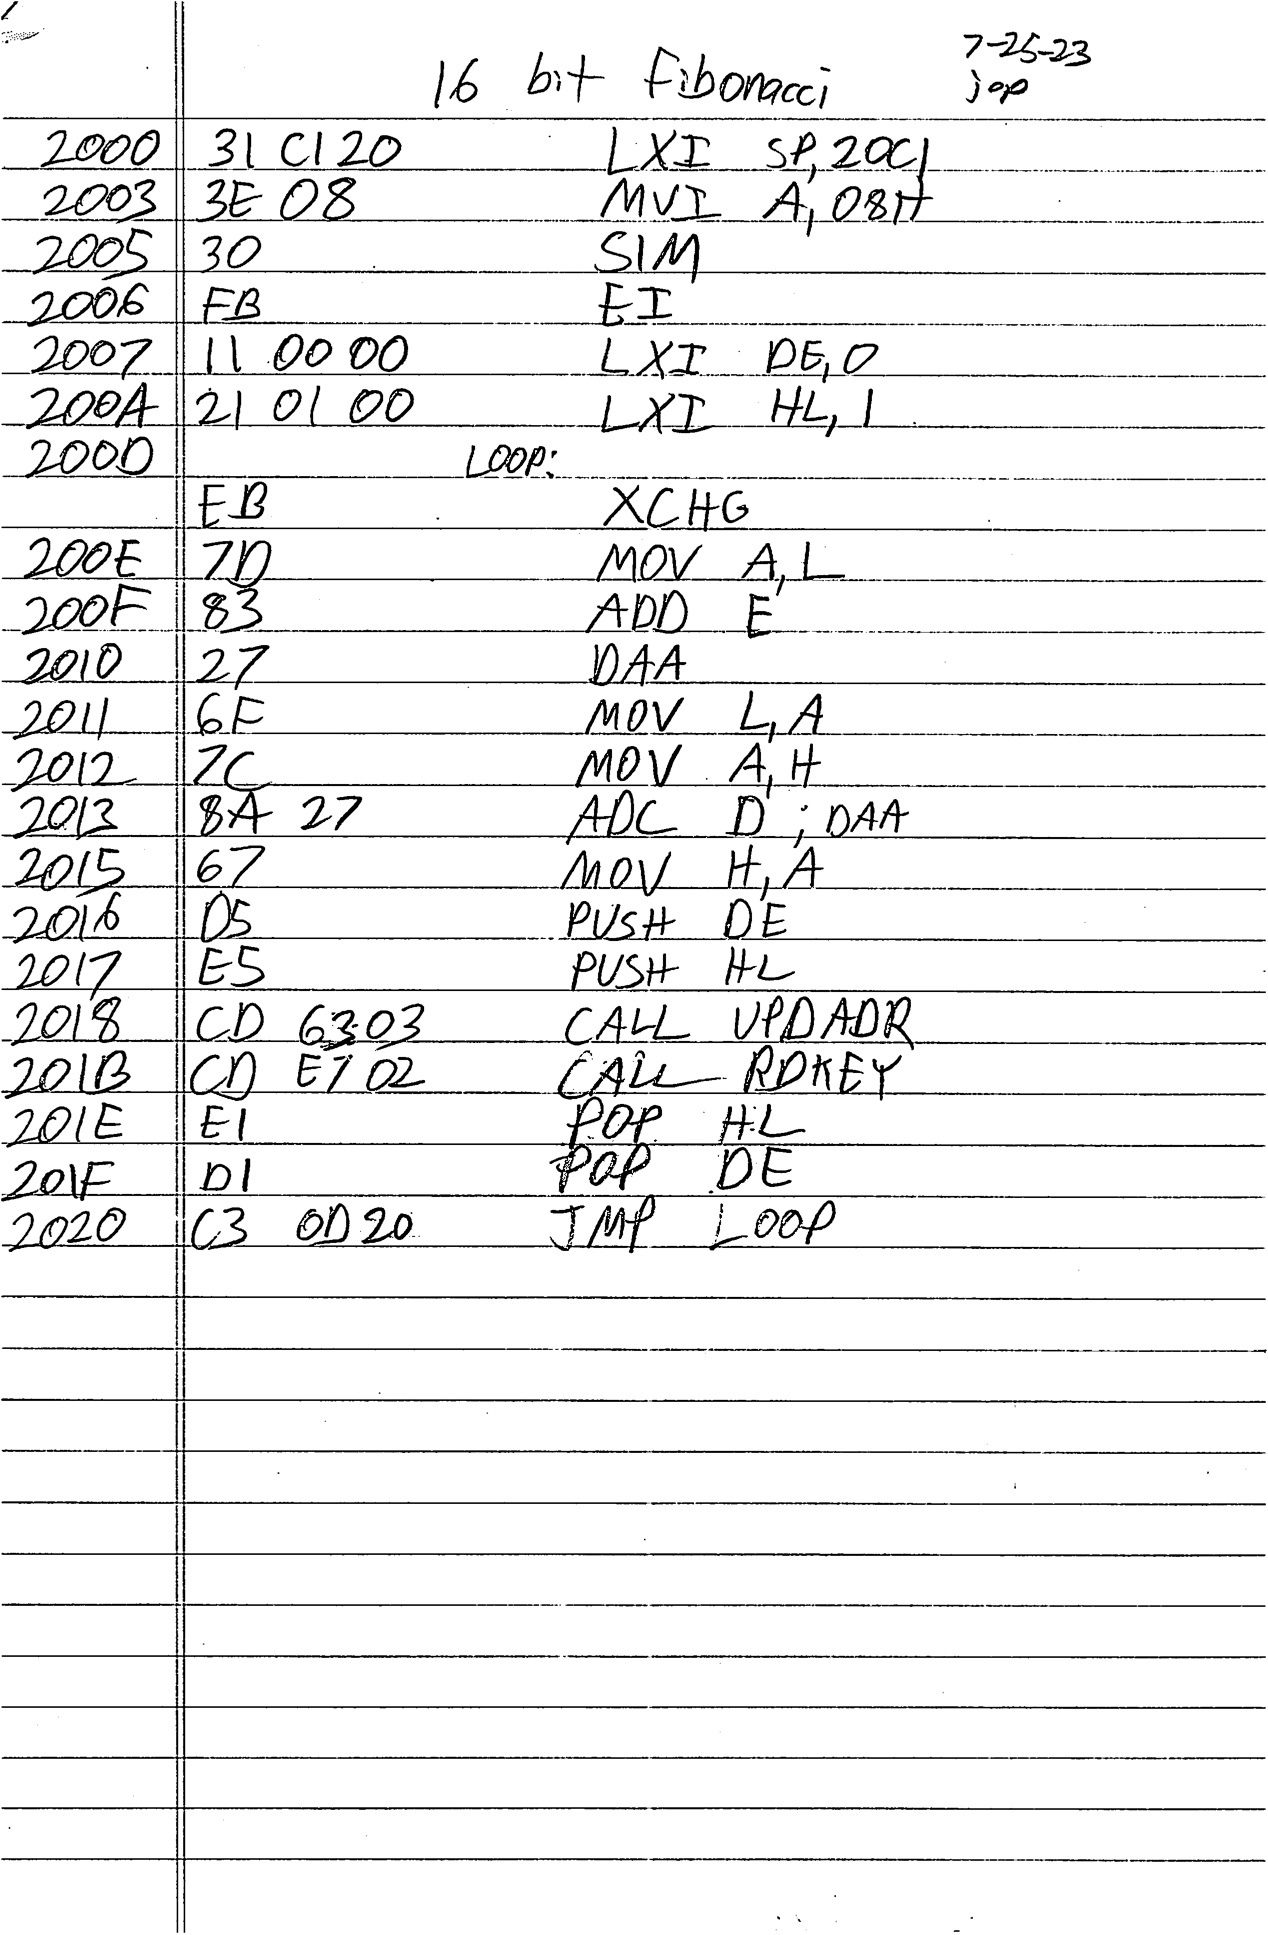 7-25-23
16 bit Fibonacci jop
2000 31 C1 20 LXI SP, 20C1
2003 3E 08 MVI A, 08H
2005 30 SIM
2006 FB EI
2007 11 00 00 LXI DE, 0
200A 21 01 00 LXI HL, 1
200D LOOP:
EB XCHG
200E 7D MOV A, L
200F 83 ADD E
2010 27 DAA
2011 6F MOV L, A
2012 7C MOV A, H
2013 8A 27 ADC D ; DAA
2015 67 MOV H, A
2016 D5 PUSH DE
2017 E5 PUSH HL
2018 CD 63 03 CALL UPDADR
201B CD E7 02 CALL RDKEY
201E E1 POP HL
201F D1 POP DE
2020 C3 0D 20 JMP LOOP